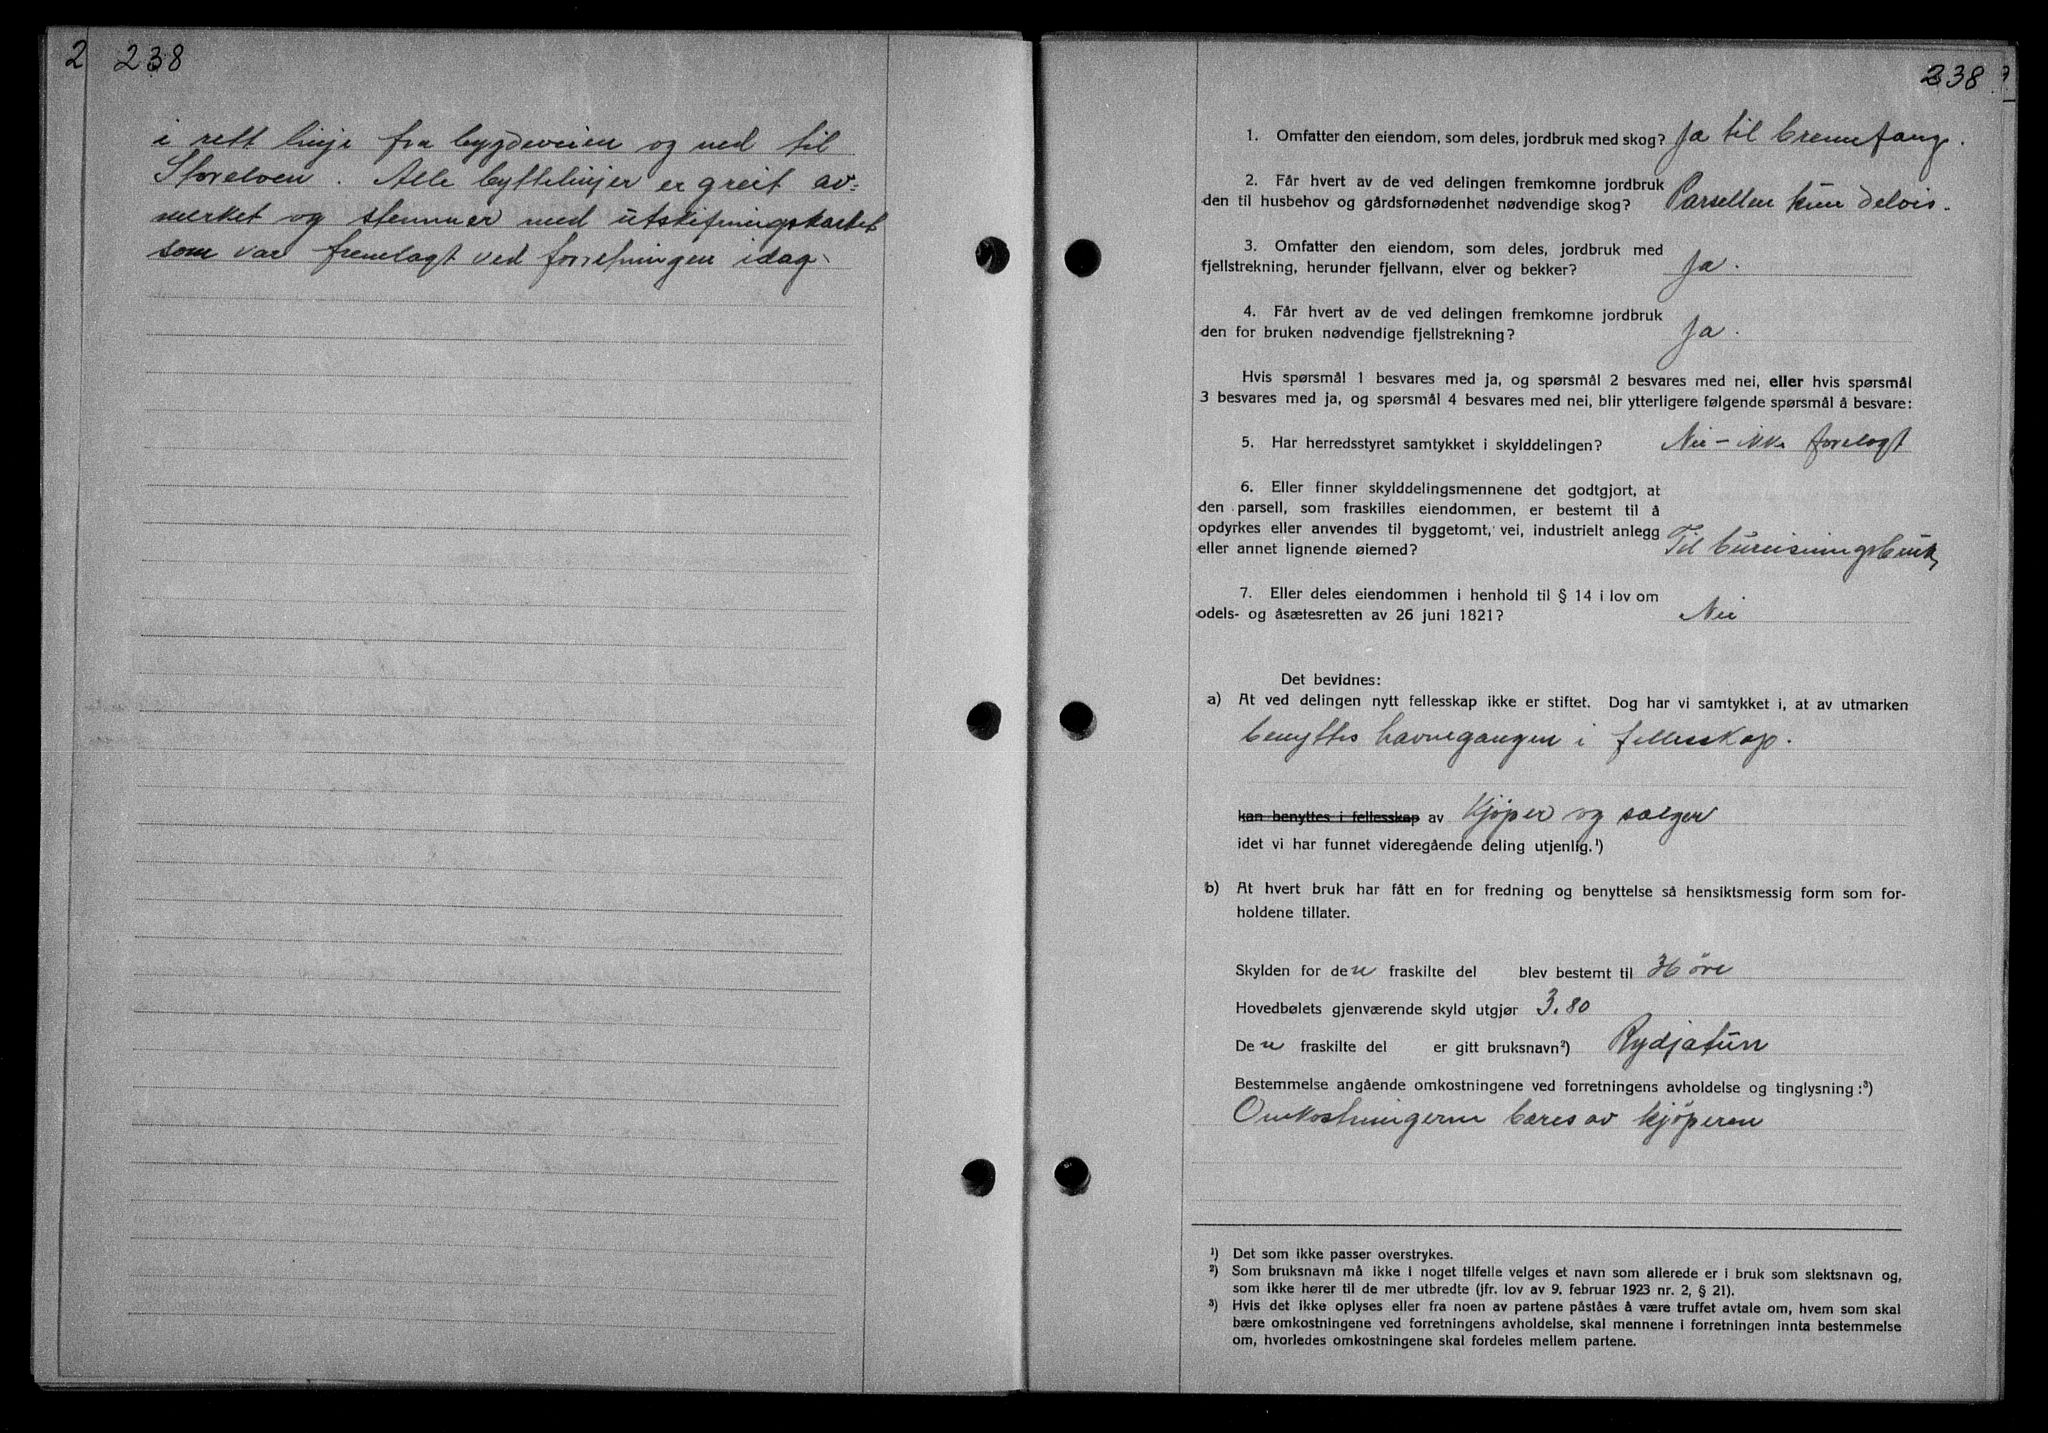 2 238
i rett linje fra bygdeveien og ned til
Storelven. Alle byttelinjer er greit av-
merket og stemmer med utskiftningskartet
som var fremlagt ved forretningen idag.
238
1. Omfatter den eiendom, som deles, jordbruk med skog? Ja til brennefang.
2. Får hvert av de ved delingen fremkomne jordbruk
den til husbehov og gårdsfornødenhet nødvendige skog? Parsellen kun delvis.
3. Omfatter den eiendom, som deles, jordbruk med
fjellstrekning, herunder fjellvann, elver og bekker? Ja.
4. Får hvert av de ved delingen fremkomne jordbruk
den for bruken nødvendige fjellstrekning? Ja.
Hvis spørsmål 1 besvares med ja, og spørsmål 2 besvares med nei, eller hvis spørsmål
3 besvares med ja, og spørsmål 4 besvares med nei, blir ytterligere følgende spørsmål å besvare:
5. Har herredsstyret samtykket i skylddelingen? Nei - ikke forelagt
6. Eller finner skylddelingsmennene det godtgjort, at
den parsell, som fraskilles eiendommen, er bestemt til å
opdyrkes eller anvendes til byggetomt, vei, industrielt anlegg
eller annet lignende øiemed? Til bureisningsbruk
7. Eller deles eiendommen i henhold til § 14 i lov om
odels- og åsætesretten av 26 juni 1821? Nei
Det bevidnes:
a) At ved delingen nytt fellesskap ikke er stiftet. Dog har vi samtykket i, at av utmarken
benyttes havnegangen i fellesskap.
kan benyttes i fellesskap av Kjøper og sælger
idet vi har funnet videregående deling utjenlig.¹)
b) At hvert bruk har fått en for fredning og benyttelse så hensiktsmessig form som for-
holdene tillater.
Skylden for den fraskilte del blev bestemt til 36 øre
Hovedbølets gjenværende skyld utgjør 3.80
Den fraskilte del er gitt bruksnavn²) Rydjatun
Bestemmelse angående omkostningene ved forretningens avholdelse og tinglysning:³)
Omkostningerne bæres av kjøperen
¹) Det som ikke passer overstrykes.
²) Som bruksnavn må ikke i noget tilfelle velges et navn som allerede er i bruk som slektsnavn og,
som ikke hører til de mer utbredte (jfr. lov av 9. februar 1923 nr. 2, § 21).
³) Hvis det ikke oplyses eller fra noen av partene påståes å være truffet avtale om, hvem som skal
bære omkostningene ved forretningens avholdelse, skal mennene i forretningen innta bestemmelse
om, hvorledes omkostningene skal fordeles mellem partene.